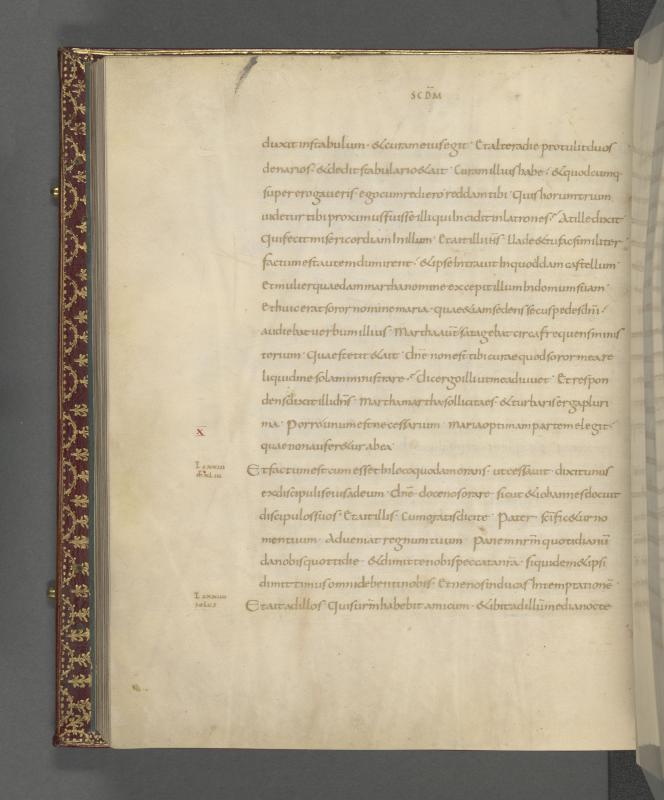 SCDM
duxit instabulum · &curameiusegit · Etalteradie protulitduos
denarios · &dedit stabulario&ait · Curamillius habe · &quodcumq
supererogaueris egocumrediero reddamtibi · Quishorumtrium
uidetur tibi proximusfuisse illi quiincidit inlatrones · Atille dixit
Quifecit misericordiam inillum · Etaitilliihs
factumest autemdumirent · &ipse intrauit inquoddam castellum
Etmulier quaedam marthanomine excepit illum indomumsuam ·
Ethuicerat soror nomine maria · quae&iamsedens secuspedesdni ·
audiebat uerbumillius · Marthaaut satagebat circafrequensminis
terium · Quaestetit &ait · Dne nonest tibicurae quodsoror meare
liquidme solamministrare · dicergoilli utmeadiuuet · Etrespon
densdixitillidns · Marthamartha sollicitaes &turbaris ergapluri
ma · Porrounumestnecessarium · mariaoptimampartem elegit ·
X
quaenonaufer&ur abea ·
Lxxxiii
Etfactumest cumess&inlocoquodamorans · utcessauit · dixitunus
exdiscipuliseius adeum · Dne docenosorare · sicut &iohannesdocuit
discipulossuos · Etaitillis · Cumoratisdicite · Pater · scific&ur no
mentuum · Adueniat regnumtuum · Panemnrm quotidianum
danobisquottidie · &dimittenobispeccatanra · siquidem&ipsi
dimittimus omnidebentinobis · Etnenosinducas intemptatione ·
solus
Etaitadillos · Quisurmhabebit amicum · &ibitadillum medianocte